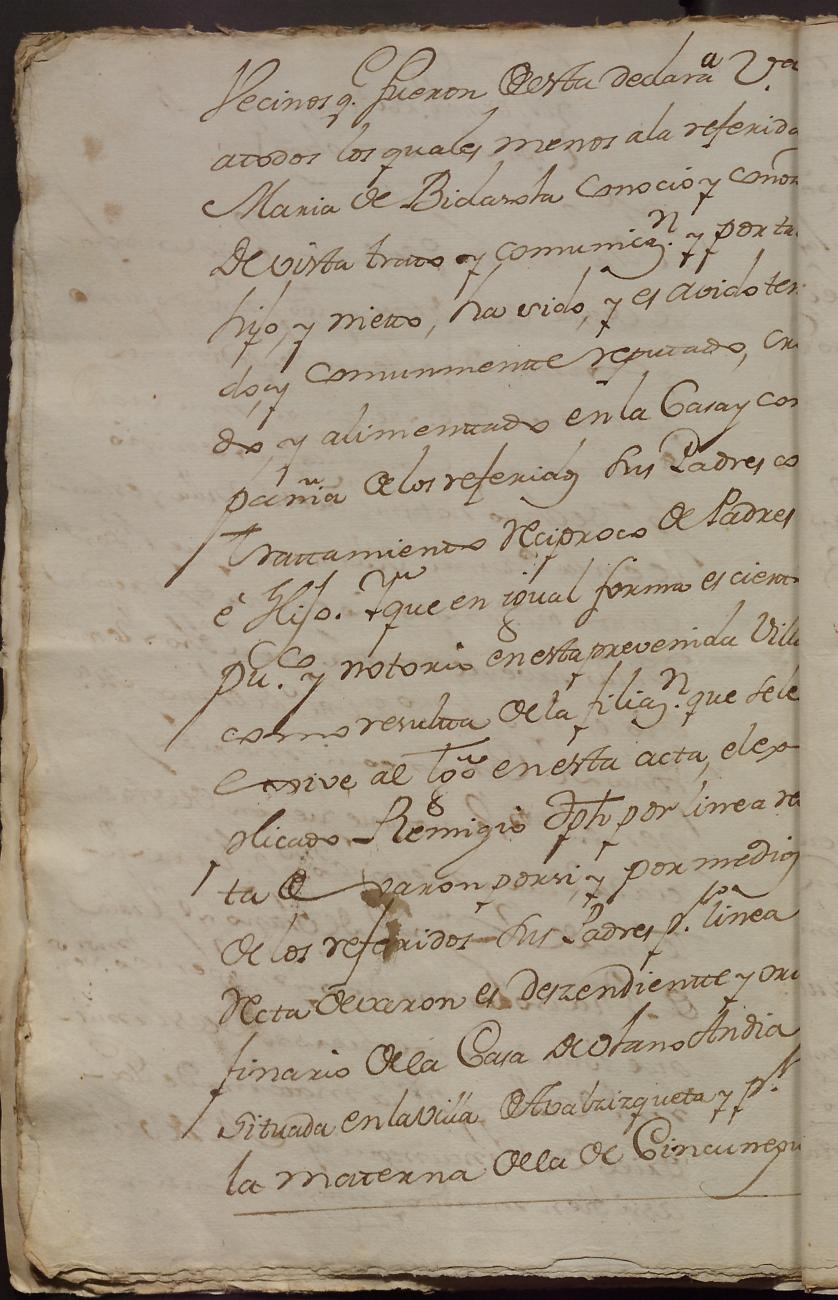 Vecinos q.e fueron desta declara.a V.a
atodos los quales menos ala referida
Maria de Bidarola conoció y conoz
De vista trato y comunica.n y por ta
hijo, y nietto, ha sido, y es avido ten
do, y comunmentte reputado, cria
do, y alimenttado en la Casa y com
pañia de los referidos sus Padres co
Trattamiento reciproco de Padres
é Hijo. Y que en igual forma es ciert
pu.co y notorio en esta prevenida Villa
como resultta de la filia.n que se le
escrive al tgo en esta acta, el ex
plicado Remigio Jph por linea re
ta de varon por si, y por medio
de los referidos sus Padres p.r linea
recta de varon es deszendientte y ori
ginario de la Casa de Olano Andia
situada en la villa de Avalzizqueta y p.r
la materna de la de Cincunegui